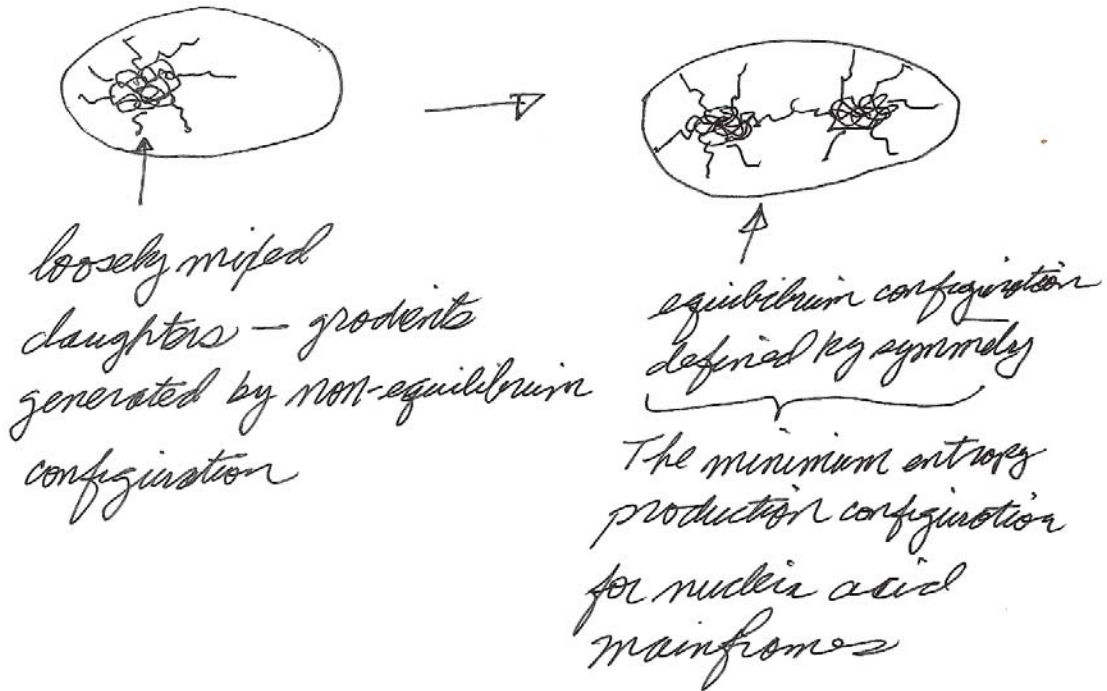 loosely mixed
daughters — gradients
generated by non-equilibrium
configuration
equilibrium configuration
defined by symmetry
The minimum entropy
production configuration
for nucleic acid
mainframes